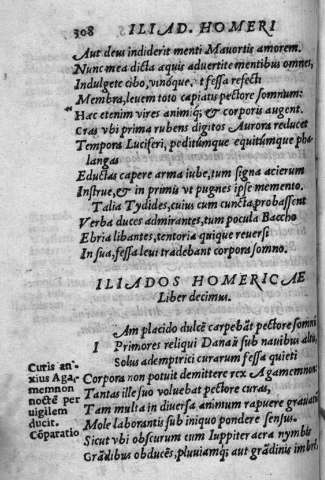 308 ILIAD. HOMERI
Aut deus indiderit menti Mauortis amorem.
Nunc mea dicta æquis aduertite mentibus omnes,
Indulgete cibo, vinóque, ut fessa refecti
Membra, leuem toto capiatis pectore somnum:
Hæc etenim vires animiq; & corporis augent.
Cras vbi prima rubens digitos Aurora reducet
Tempora Luciferi, peditúmque equitúmque pha-
langas
Eductas capere arma iube, tum signa acierum
Instrue, & in primis ut pugnes ipse memento.
Talia Tydides, cuius cum cuncta probassent
Verba duces admirantes, tum pocula Baccho
Ebria libantes, tentoria quique reuersi
In sua, fessa leui tradebant corpora somno.
ILIADOS HOMERICAE
Liber decimus.
I
Am placido dulcē carpebāt pectore somnū
Primores reliqui Danaū sub nauibus altis,
Solus ademptrici curarum fessa quieti
Corpora non potuit demittere rex Agamemnon:
Tantas ille suo voluebat pectore curas,
Tam multa in diuersa animum rapuere grauatū
Mole laborantis sub iniquo pondere sensus.
Sicut vbi obscurum cum Iuppiter aera nymbis
Grādibus obduces, pluuiámq; aut grādinis
Curis an-
xius Aga-
memnon
noctē per
uigilem
ducit.
Cōparatio